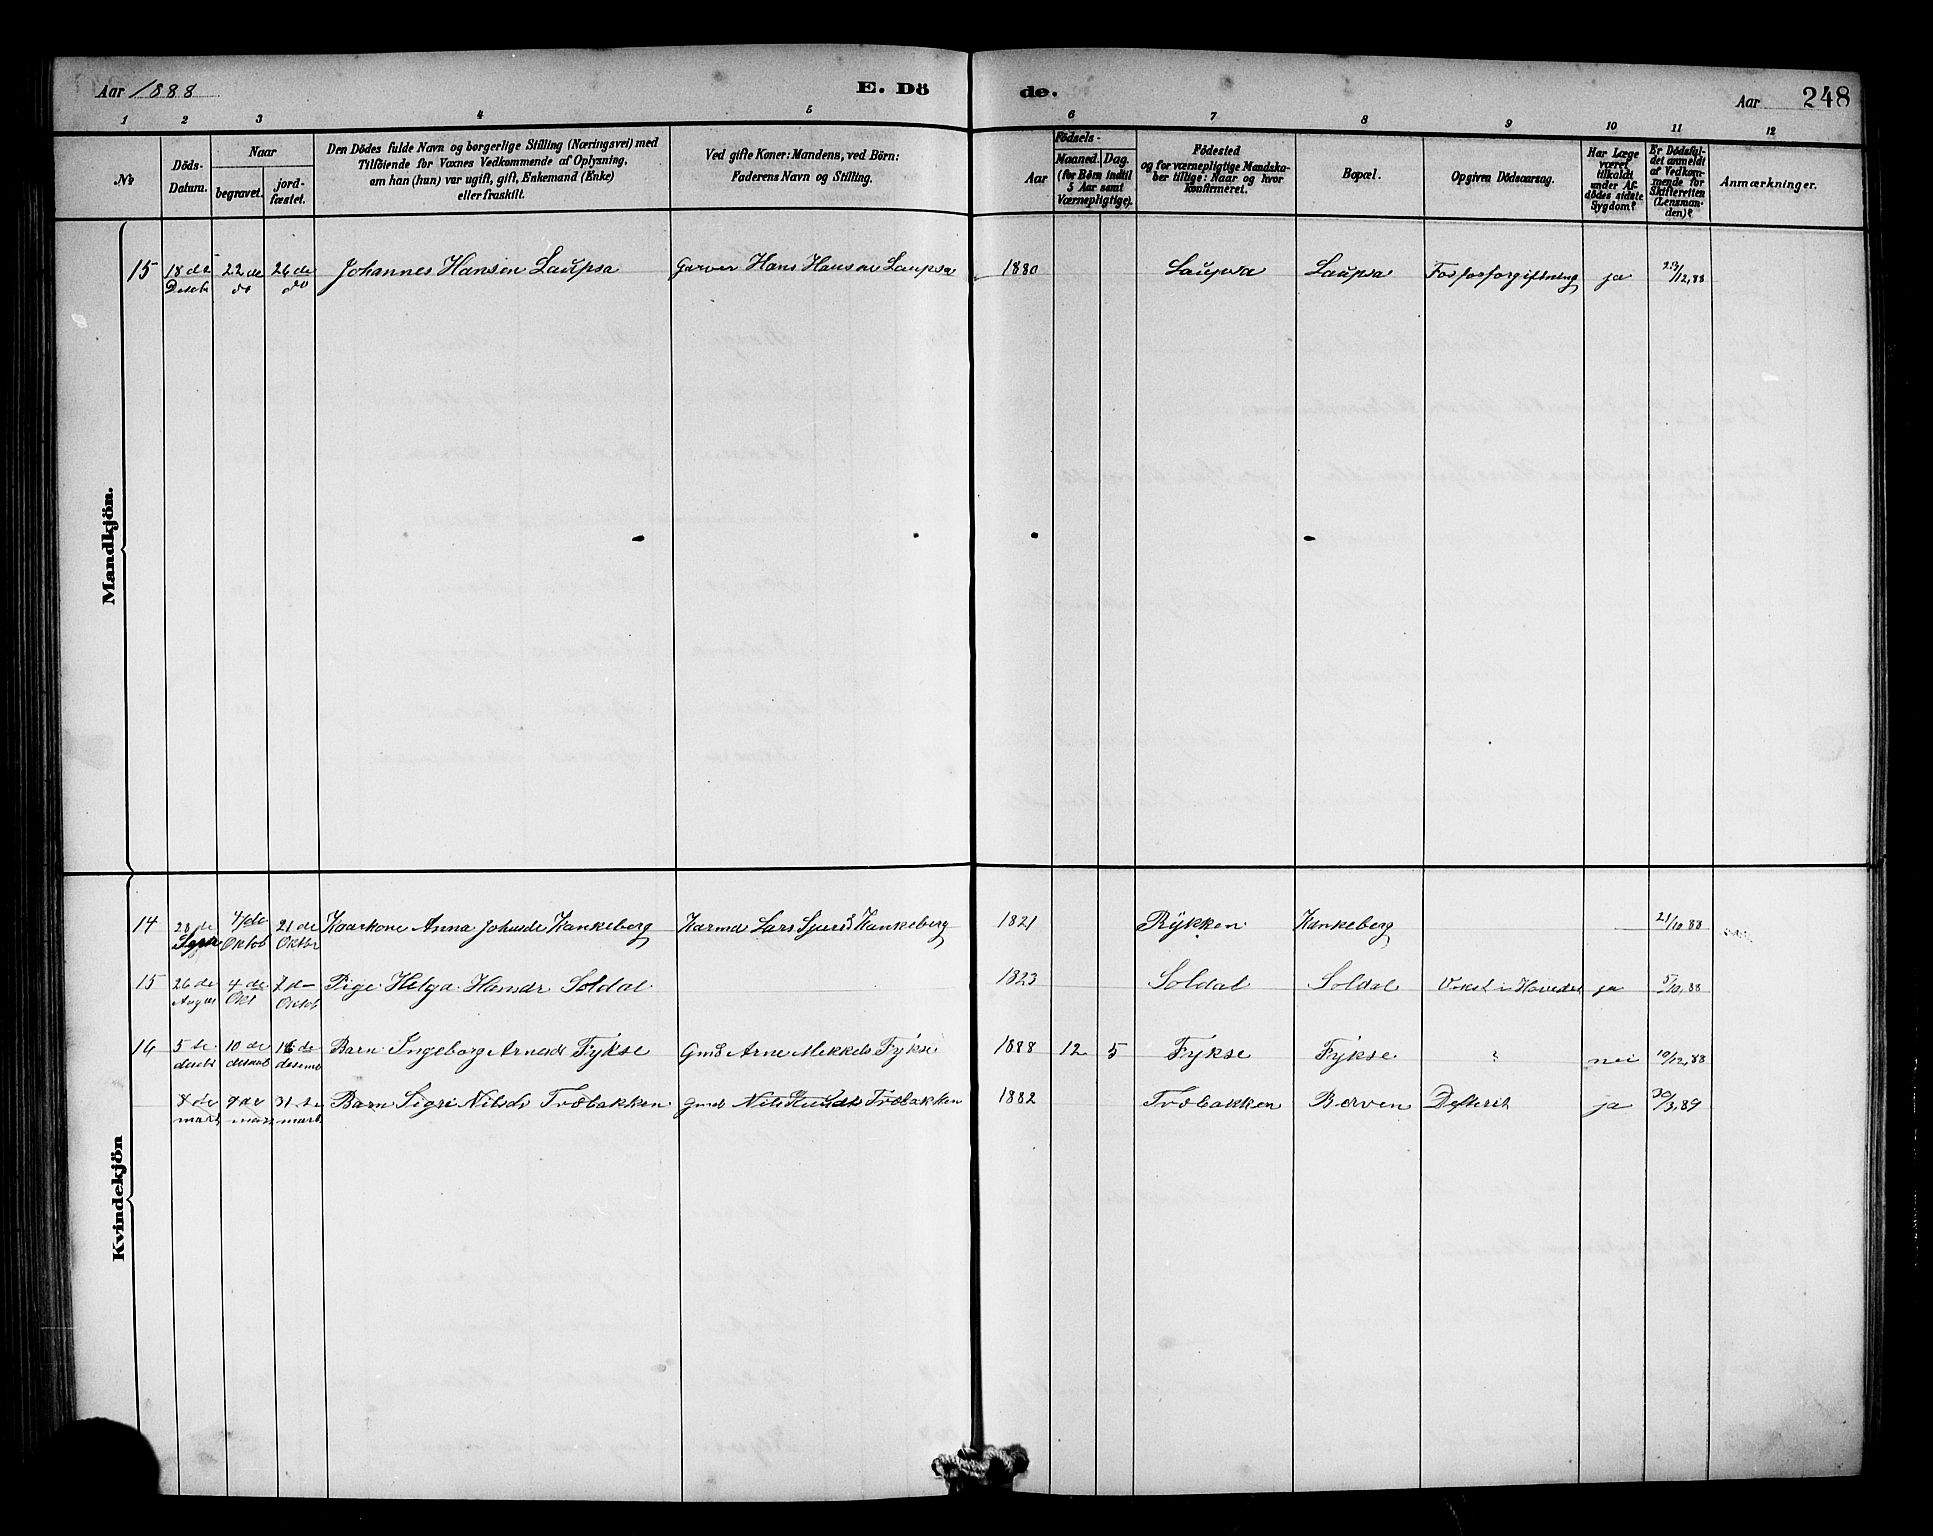 Aar 1888
E. Dö de.
Aar 248
1 2 3 4 5 6 7 8 9 10 11 12
No
Döds-Datum.
Naar
begravet.
jord-fæstet.
Den Dödes fulde Navn og borgerlige Stilling (Næringsvei) med
Tilföiende for Voxnes Vedkommende af Oplysning,
om han (hun) var ugift, gift, Enkemand (Enke)
eller fraskilt.
Ved gifte Koner: Mandens, ved Börn:
Faderens Navn og Stilling.
Födsels-
Aar
Maaned. Dag.
(for Börn indtil
5 Aar samt
Værnepligtige).
Födested
og for værnepligtige Mandska-
ber tillige: Naar og hvor
konfirmeret.
Bopæl.
Opgiven Dödsaarsag.
Har Læge
været
tilkaldt
under Af-
dödes sidste
Sygdom?
Er Dödsfal-
det anmeldt
af Vedkom-
mende for
Skifteretten
(Lensman-
den)?
Anmærkninger.
Mandkjön.
15 18de Desbr 22de do 26de do Johannes Hansen Laupsa Garver Hans Hansen Laupsa 1880 Laupsa Laupsa Fosforforgiftning ja 23/12,88
Kvindekjön
14 28de Septr 4/de Oktob 21de Oktbr Kaarkone Anna Johnsdr Kankeberg Karmd Lars Sjurss Kankeberg 1821 Rykken Kankeberg 21/10 88
15 26de 4de Okt 7d Oktob Pige Helga Hansdr Soldal 1823 Soldal Soldal Vekst i Hovedet ja 5/10,88
16 5te desbr 10de desemb 16de desemb Barn Ingeborg Arnesdr Fykse Gmd Arne Mikkels Fykse 1888 12 5 Fykse Fykse " nei 10/12,88
8de marts 9de mars 31te marts Barn Sigri Nilsdr Tvebakken Gmd Nils Tvebakken 1882 Tvebakken Berven Defterit ja 30/3,89